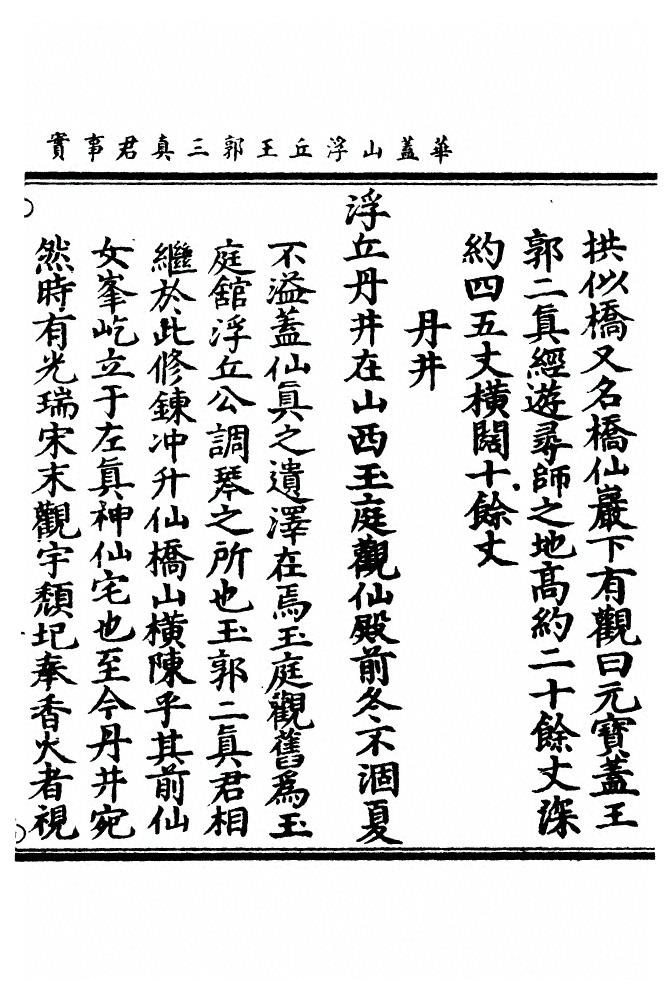 華蓋山浮丘王郭三真君事實
拱似橋又名橋仙巖下有觀曰元寶蓋王
郭二眞經遊尋師之地高約二十餘丈深
約四五丈橫闊十餘丈
丹井
浮丘丹井在山西玉庭觀仙殿前冬不涸夏
不溢蓋仙眞之遺澤在焉玉庭觀舊爲玉
庭舘浮丘公調琴之所也玉郭二眞君相
繼於此修鍊冲升仙橋山橫陳乎其前仙
女峯屹立于左眞神仙宅也至今丹井宛
然時有光瑞宋末觀宇頽圮奉香火者視